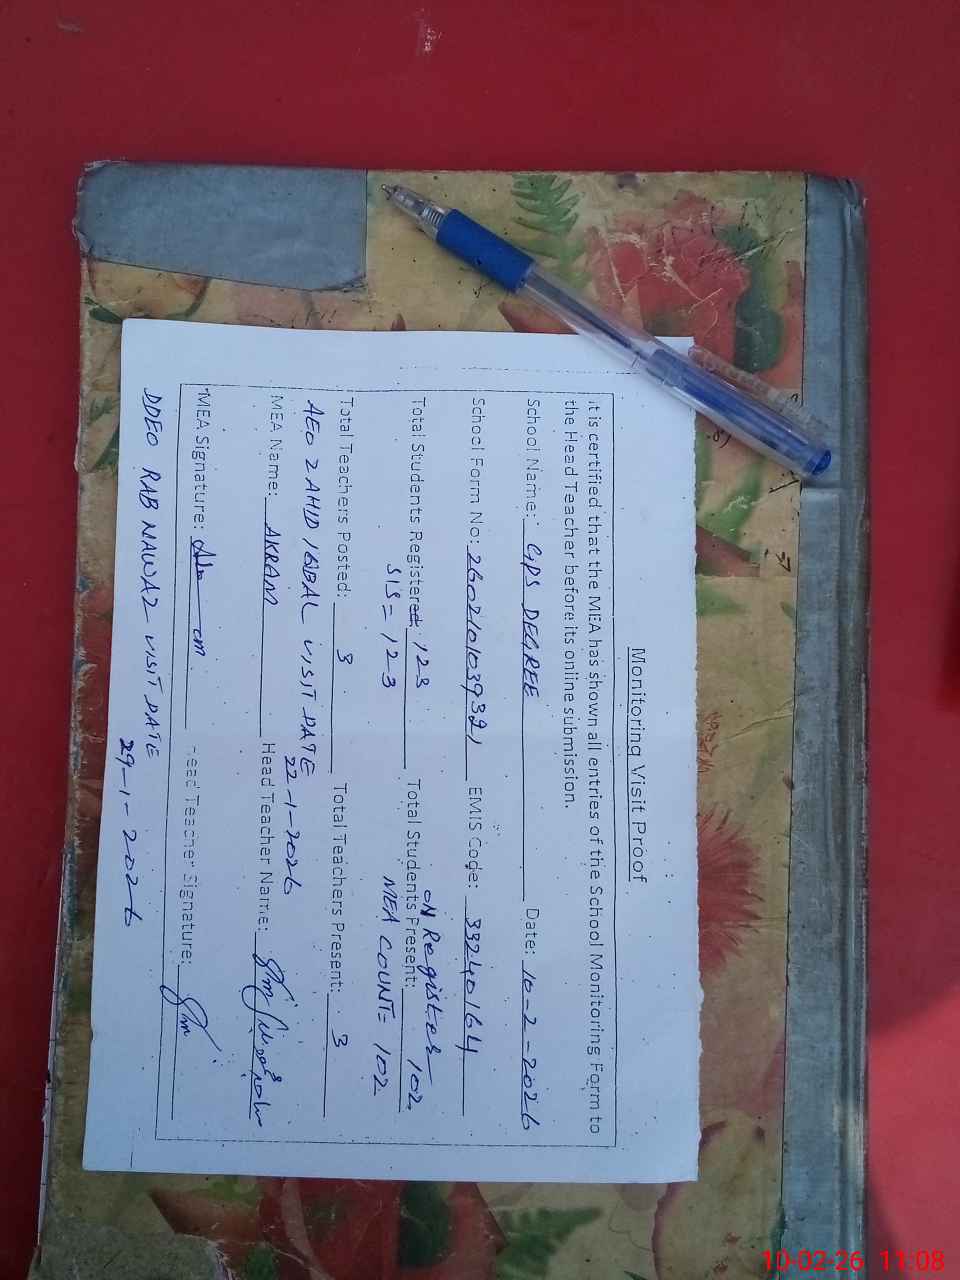 Monitoring Visit Proof
it is certified that the MEA has shown all entries of the School Monitoring Form to
the Head Teacher before its online submission.
School Name: GPS DEGREE Date: 10-2-2026
School Form No: 26021039321 EMIS Code: 33240164
ON Register
Total Students Registered: 123 Total Students Present: 102
SIS = 123 MEA COUNT= 102
Total Teachers Posted: 3 Total Teachers Present: 3
AEO ZAHID IQBAL VISIT DATE
22-1-2026
MEA Name: AKRAM Head Teacher Name:
MEA Signature: Head Teacher Signature:
DDEO RAB NAWAZ VISIT DATE
29-1-2026
10-02-26 11:08